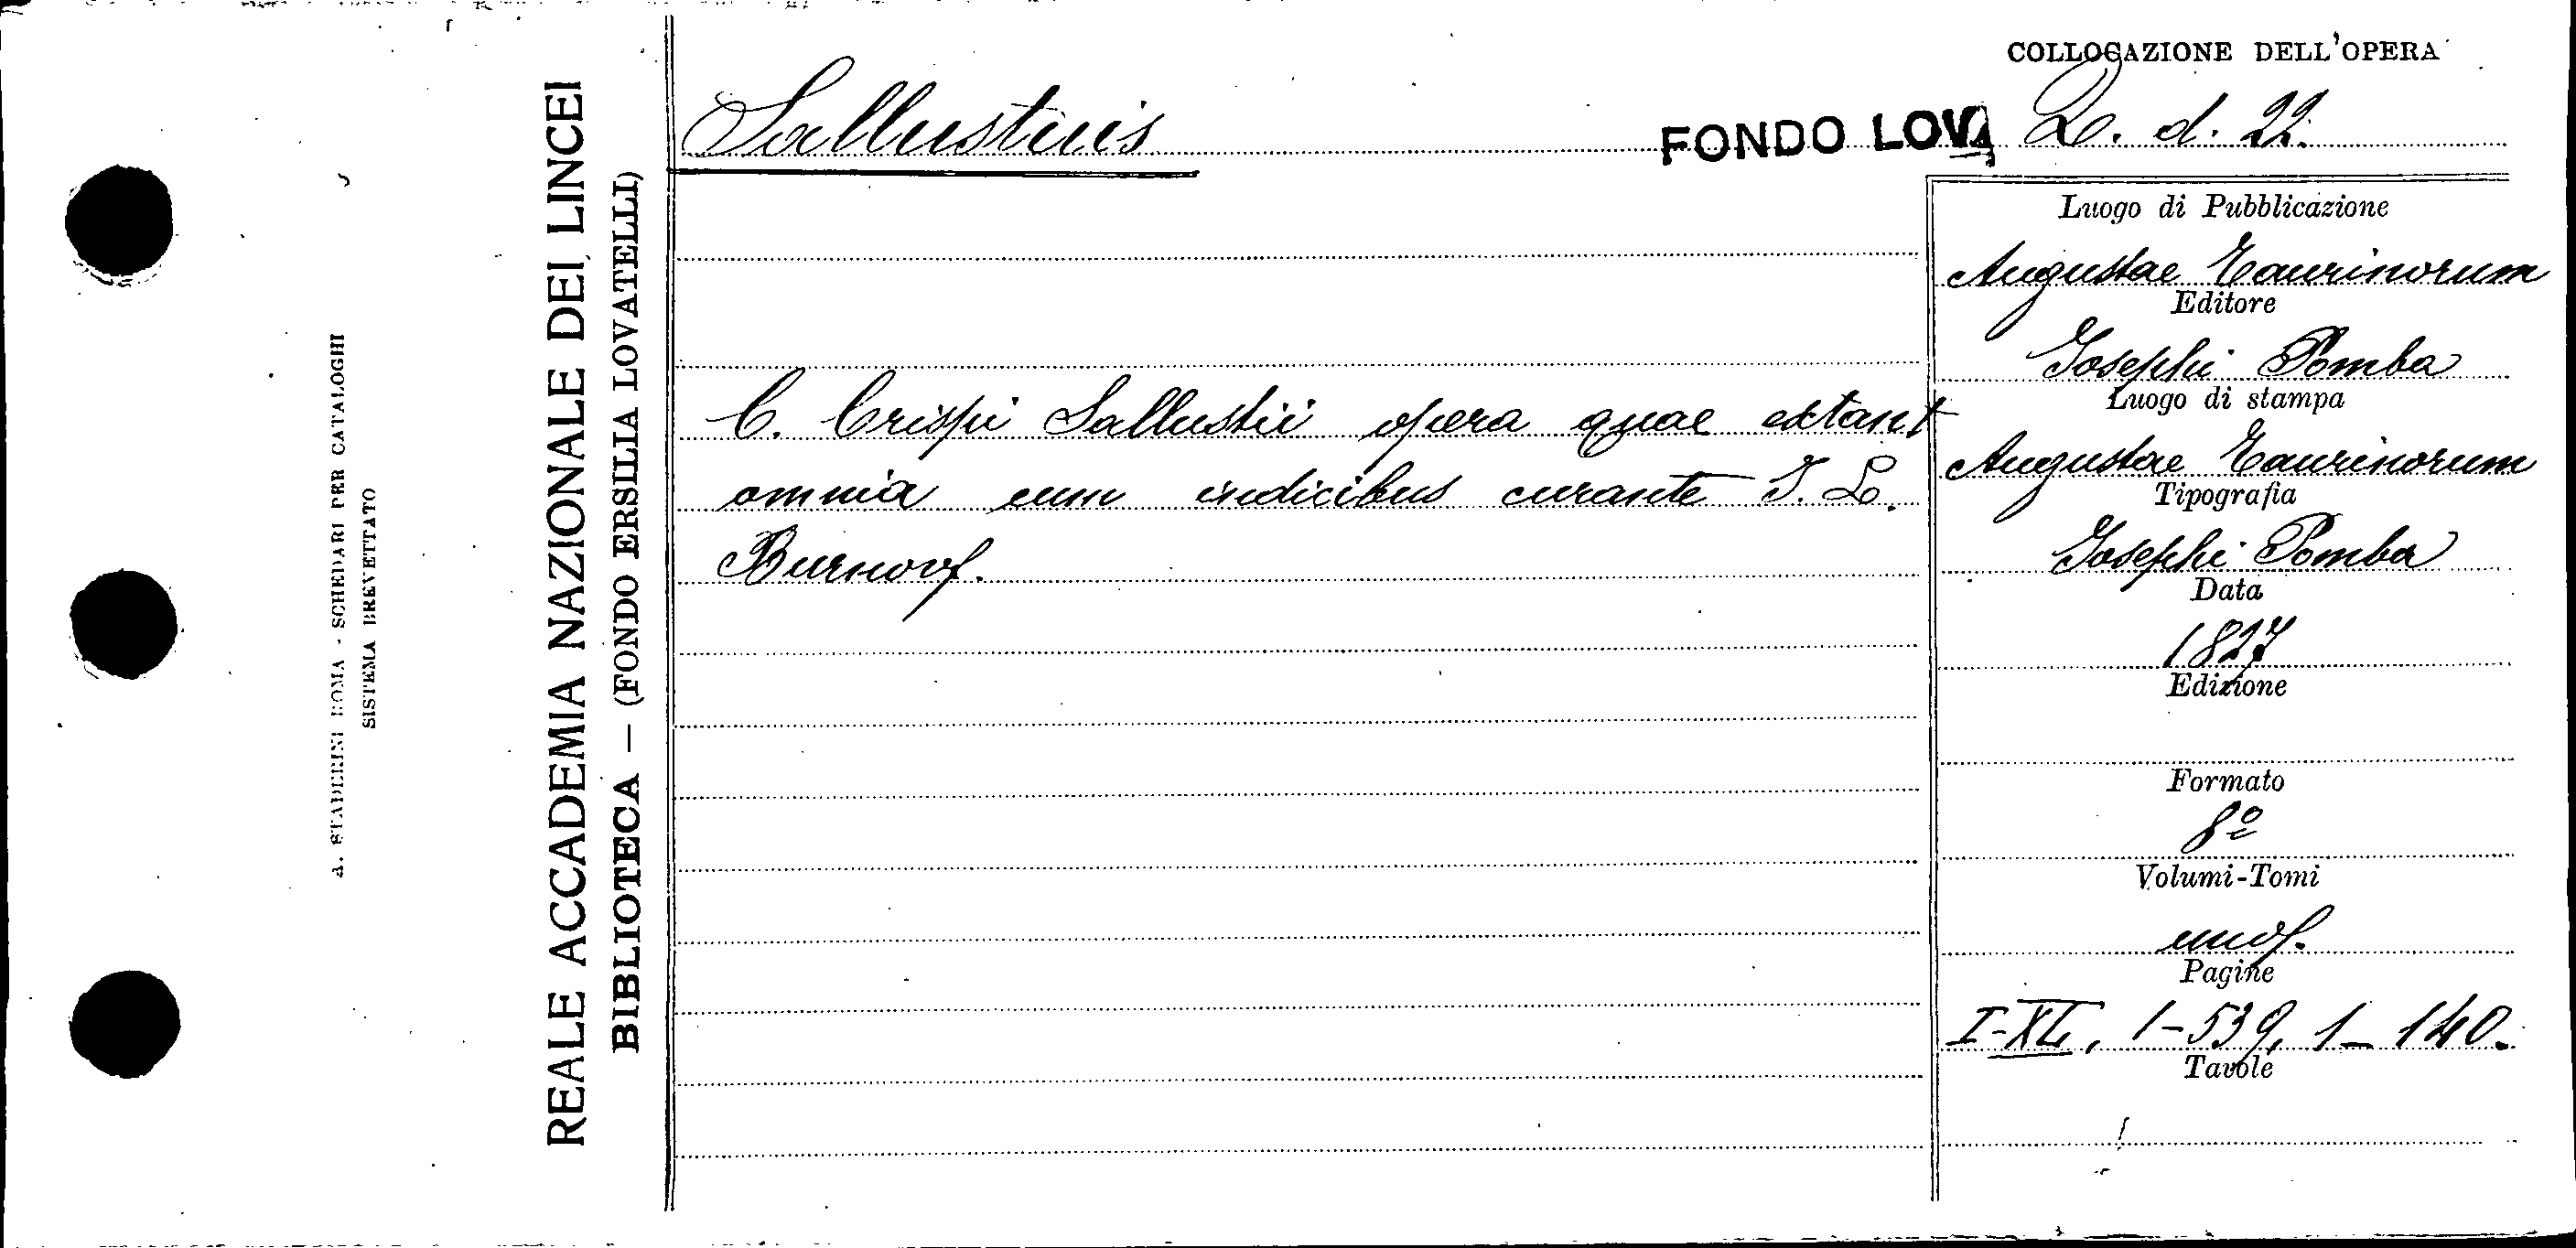 COLLOCAZIONE DELL'OPERA
Sallustius
FONDO LOV. 2. d. 22.
REALE ACCADEMIA NAZIONALE DEI LINCEI
BIBLIOTECA — (FONDO ERSILIA LOVATELLI)
A. STADERINI ROMA - SCHEDARI PER CATALOGHI
SISTEMA BREVETTATO
C. Crispi Sallustii opera quae extant
omnia cum indicibus curante I. L.
Burnouf.
Luogo di Pubblicazione
Augustae Taurinorum
Editore
Josephi Pomba
Luogo di stampa
Augustae Taurinorum
Tipografia
Josephi Pomba
Data
1827
Edizione
Formato
8º
Volumi-Tomi
Pagine
I-XL, 1-539, 1-140.
Tavole